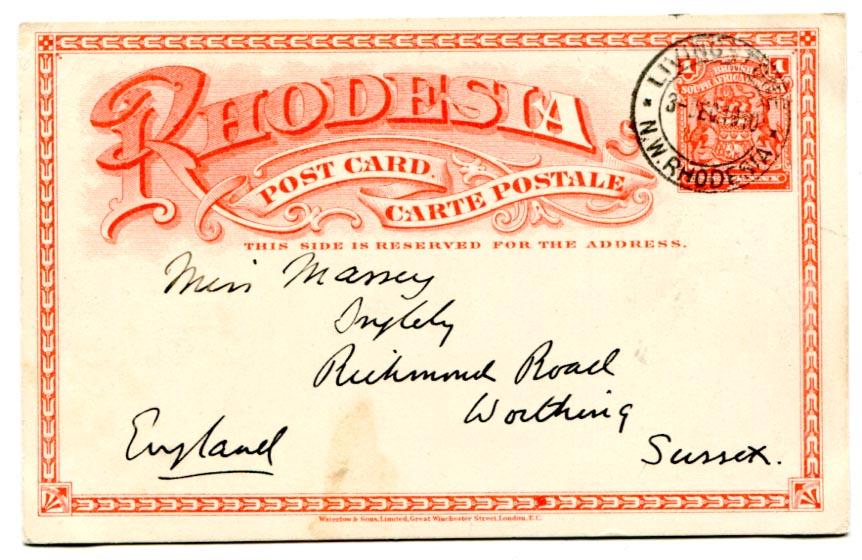 RHODESIA
POST CARD.
CARTE POSTALE
THIS SIDE IS RESERVED FOR THE ADDRESS.
1 1
BRITISH
SOUTH AFRICA
N.W. RHODESIA
Miss Massey
Ingleby
Richmond Road
Worthing
Sussex.
England
Waterlow & Sons, Limited, Great Winchester Street, London, E.C.